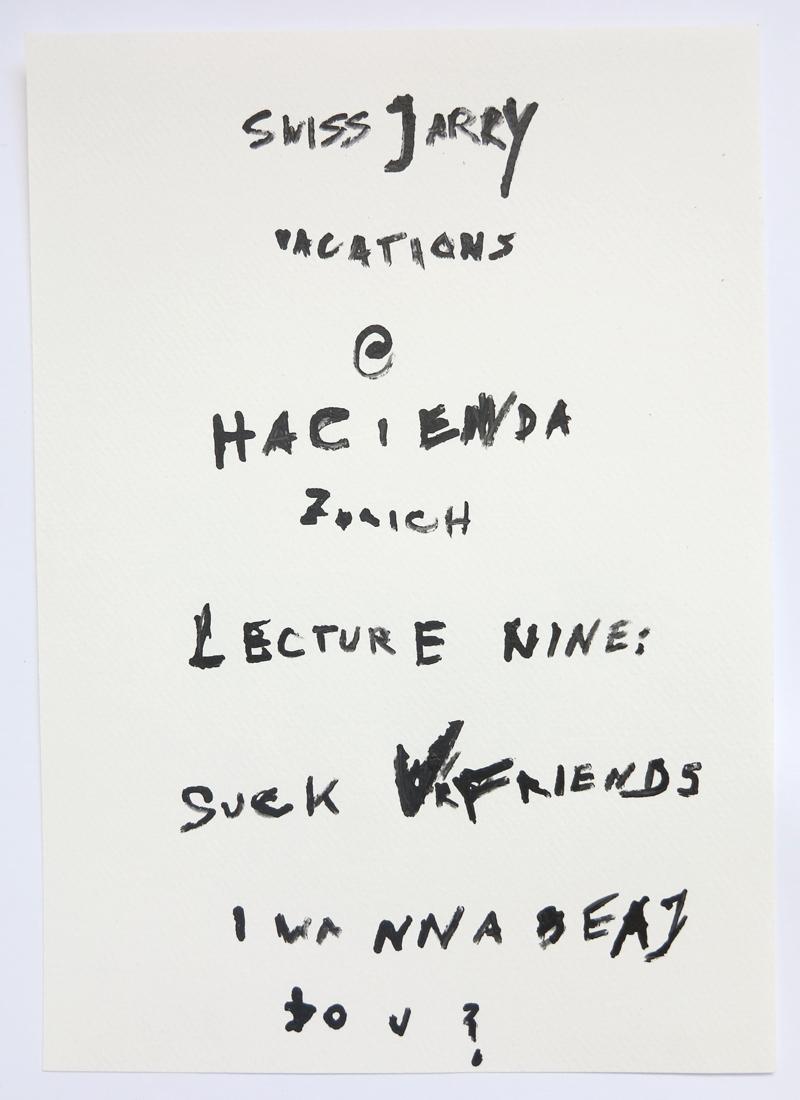 SWISS JARRY
VACATIONS
@
HACIENDA
ZURICH
LECTURE NINE:
SUCK URFRIENDS
I WANNA BEAT
DO U ?